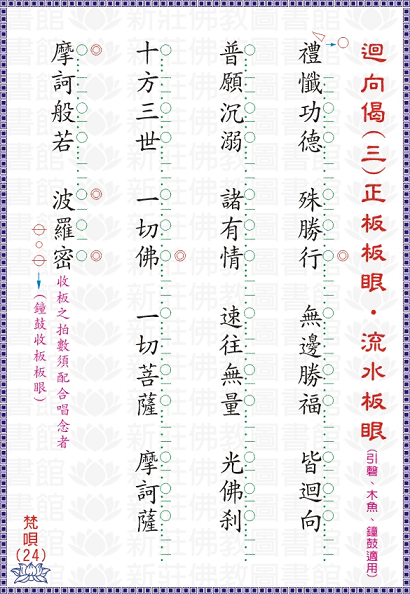 迴向偈(三)正板板眼・流水板眼(引磬、木魚、鐘鼓適用)
禮懺功德 殊勝行 無邊勝福 皆迴向
普願沉溺 諸有情 速往無量 光佛刹
十方三世 一切佛 一切菩薩 摩訶薩
摩訶般若 波羅密
收板之拍數須配合唱念者
(鐘鼓收板板眼)
梵唄
(24)
新莊佛教圖書館